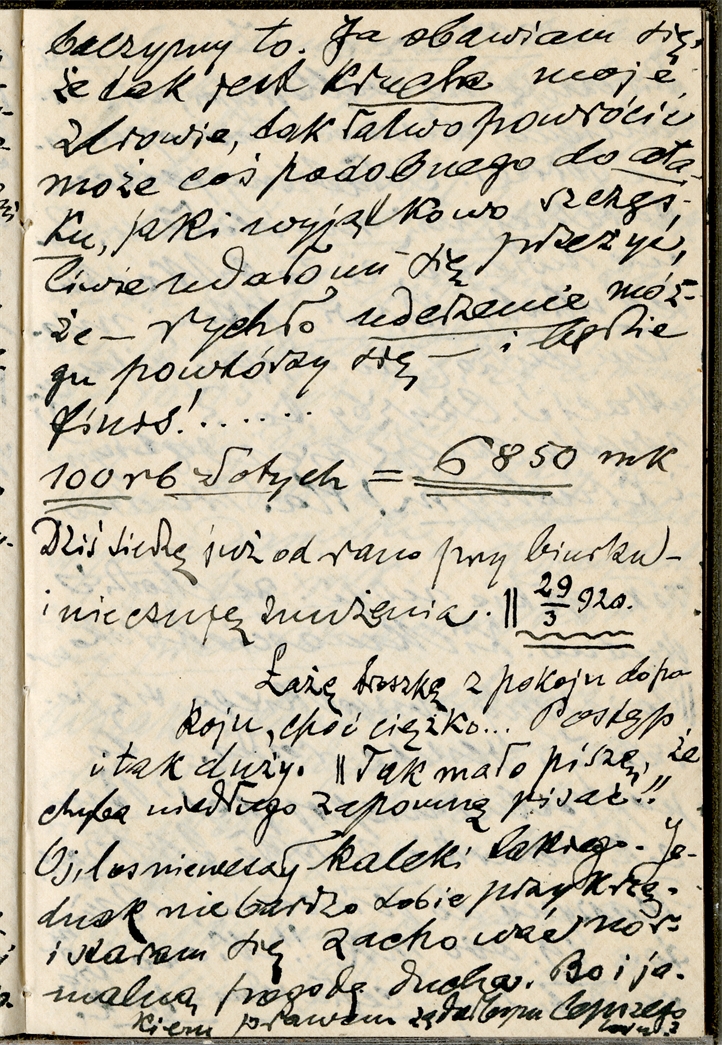 baczymy to. Ja obawiam się,
że tak jest krucha moje
zdrowie, tak łatwo powrócić
może coś podobnego do ata-
ku, jaki wyjątkowo szczęś-
liwie udało mi się przeżyć,
że – rychło uderzenie móz-
gu powtórzy się – i będzie
finis! . . . . . .
100 rb złotych = 6850 mk
Dziś siedzę już od rano przy biurku –
i nie czuję znużenia. || 29/3 920.
Łażę troszkę z pokoju do po
koju, choć ciężko... Postęp
i tak duży. || Tak mało piszę, że
chyba niedługo zapomnę pisać!!
Oj, los niewesoły kaleki takiego. Je-
dnak nie bardzo sobie przykrzę
i staram się zachować nor-
malną pogodę ducha. Bo i ja-
kiem prawem żądałbym lepszego
losu?